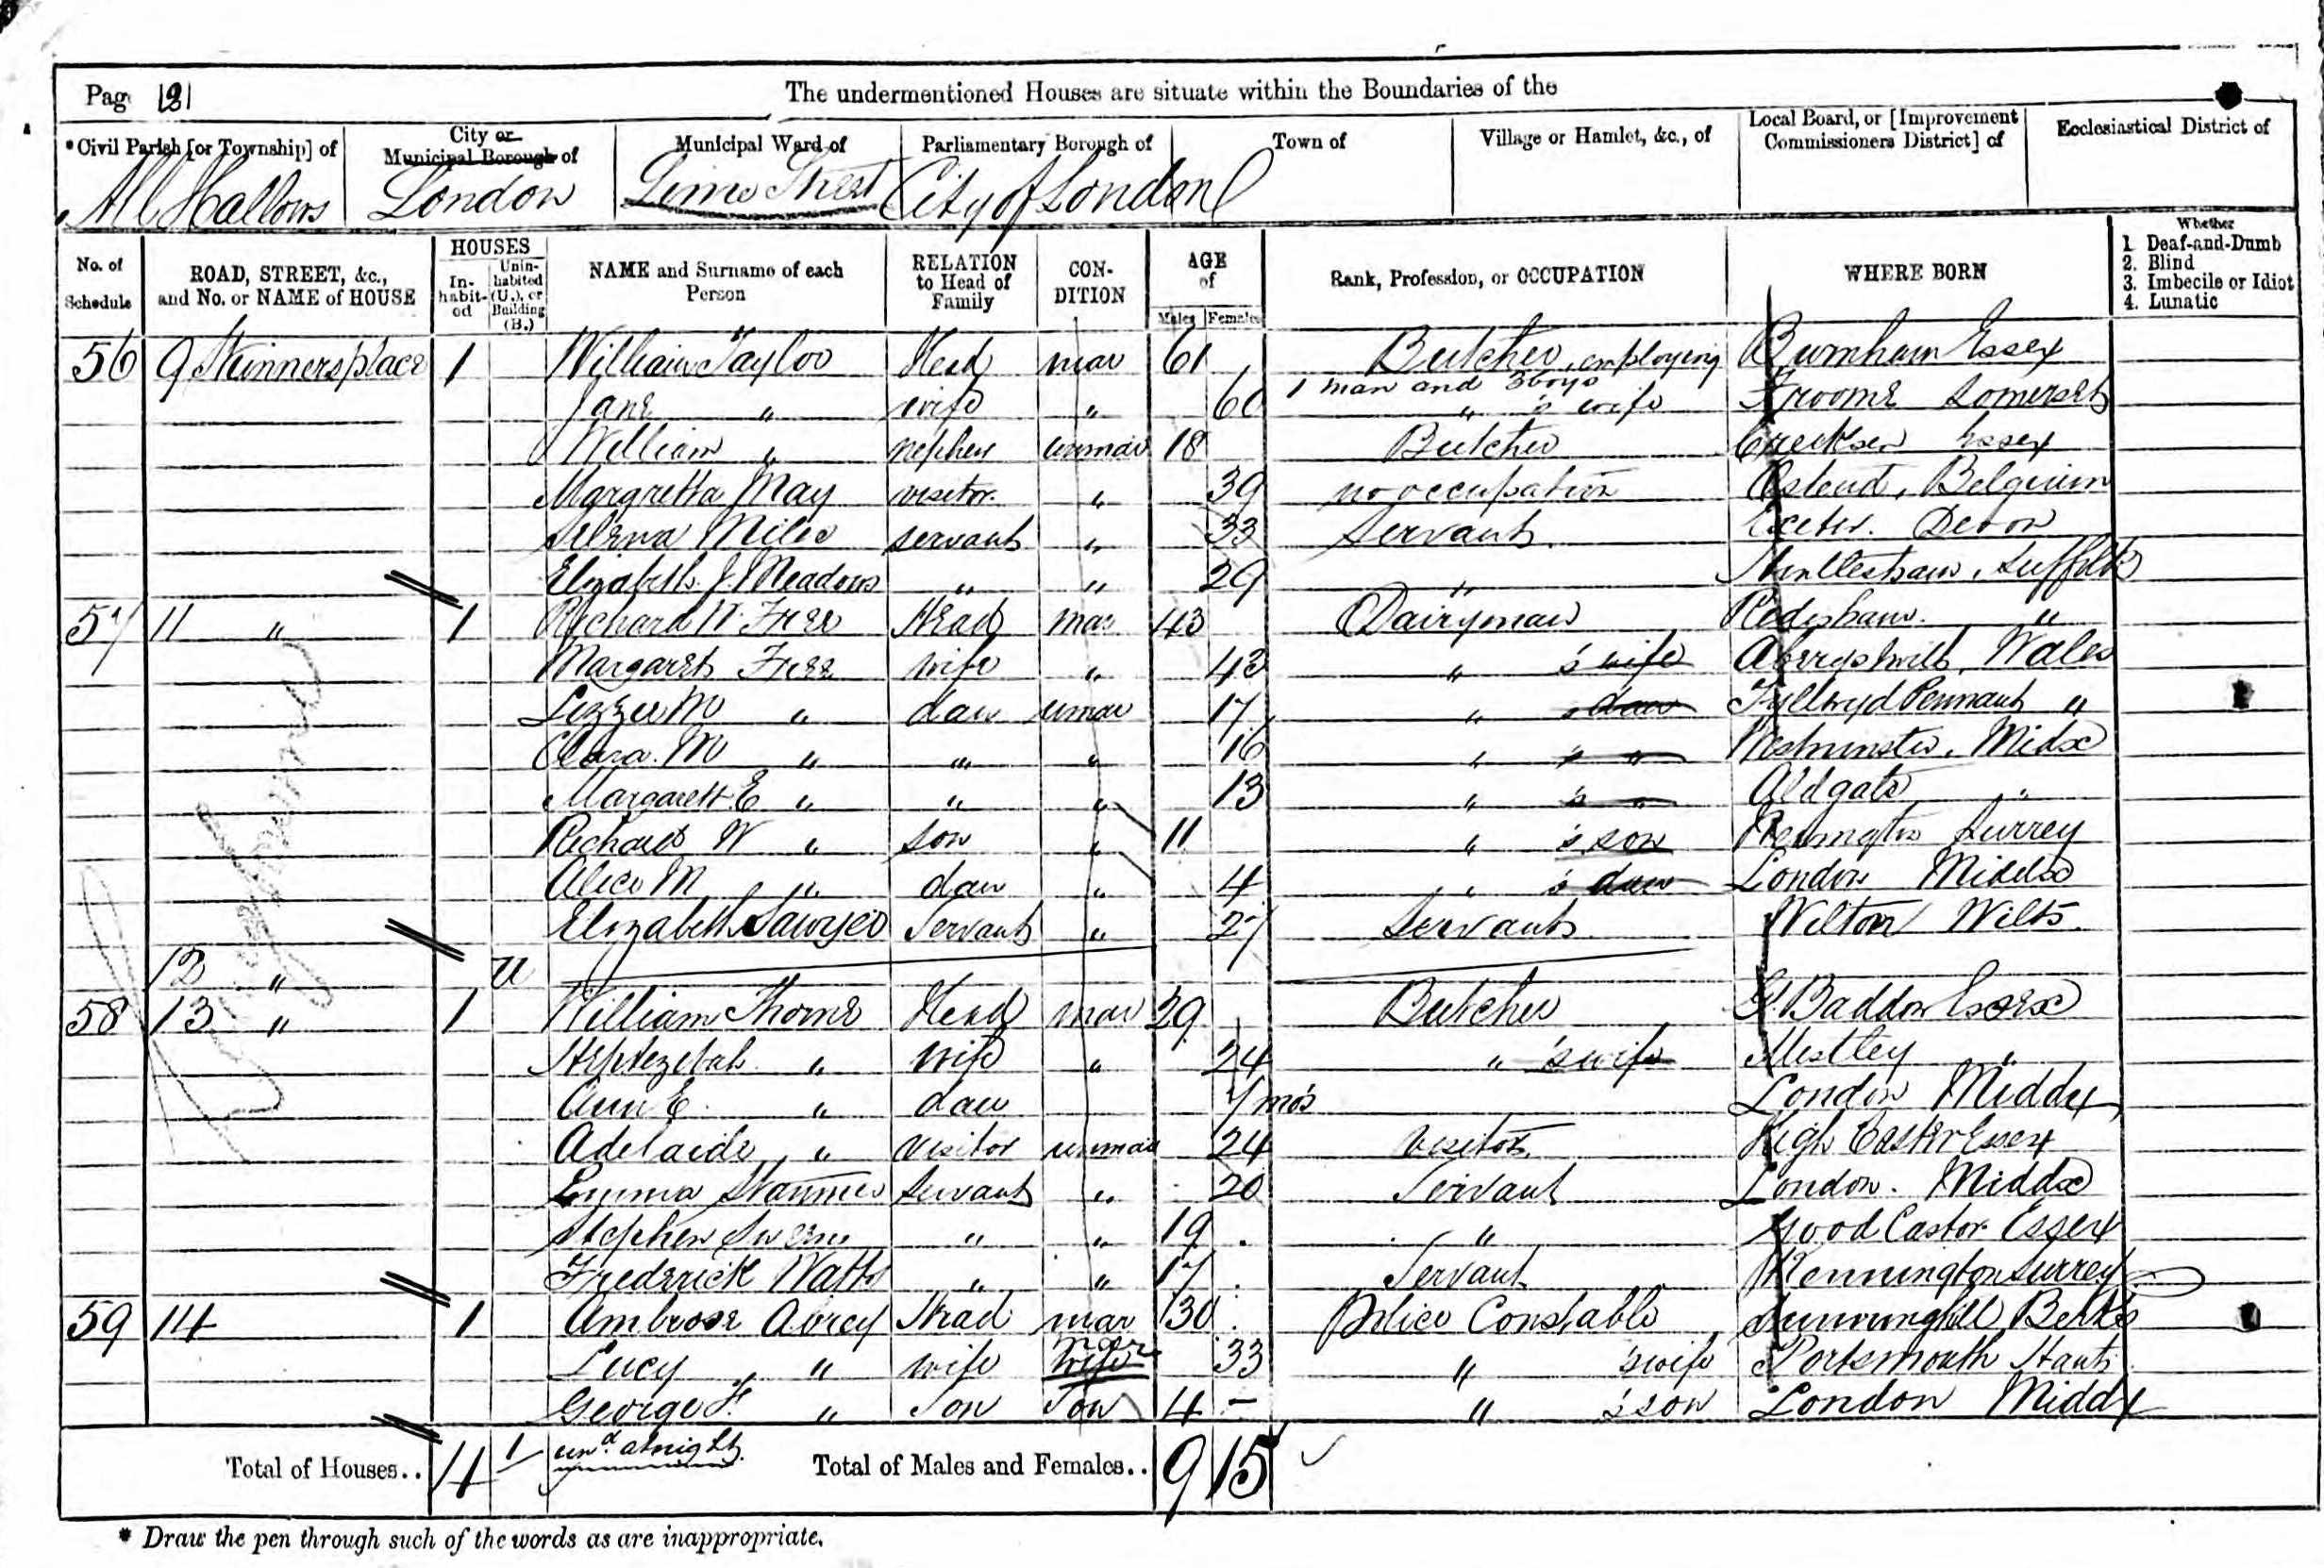 Page 12
The undermentioned Houses are situate within the Boundaries of the
*Civil Parish [or Township] of City or Municipal Borough of Municipal Ward of Parliamentary Borough of Town of Village or Hamlet, &c., of Local Board, or [Improvement Commissioners District] of Ecclesiastical District of
All Hallows London Lime Street City of London
No. of Schedule ROAD, STREET, &c., and No. or NAME of HOUSE HOUSES Inhabited Uninhabited (U.), or Building (B.) NAME and Surname of each Person RELATION to Head of Family CONDITION AGE of Males Females Rank, Profession, or OCCUPATION WHERE BORN Whether 1. Deaf-and-Dumb 2. Blind 3. Imbecile or Idiot 4. Lunatic
56 9 Skinners place 1 William Taylor Head mar 61 Butcher, employing 1 man and 3 boys Burnham Essex
Jane " wife " 60 " 's wife Froome Somerset
William " nephew unmar 18 Butcher Essex
Margretta May visitor " 39 no occupation Ostend, Belgium
Selena Miles servant " 33 Servant Exeter. Devon
Elizabeth J. Meadows " " 29 " Suffolk
57 11 " 1 Richard W. Free Head mar 43 Dairyman "
Margaret Free wife " 43 " 's wife Wales
Lizzie M " daw unmar 17 " s daw Pennant "
Clara. M " " " 16 " 's " Westminster. Midx
Margarett E " " " 13 " 's " Aldgate "
Richard W " son " 11 " 's son Surrey
Alice M " daw " 4 " 's daw London Middx
Elizabeth Sawyer Servant " 27 Servant Wilton Wilts.
12 " U
58 13 " 1 William Thorne Head mar 29 Butcher Gt. Baddow Essex
" wife " 24 " 's wife "
Ann E. " daw 7 mo's London Middx
Adelaide " visitor unmar 24 visitor High Easter Essex
Emma servant " 20 Servant London. Middx
Stephen " " 19 " Good Castor Essex
Frederick Watts " " 17 Servant Kennington Surrey
59 14 1 Ambrose Avrey Head mar 30 Police Constable Sunninghill Berks
Lucy " wife wife mar 33 " 's wife Portsmouth Hants
George F. " Son Son 4 – " 's son London Middx
Total of Houses.. 4 1 und. at night. Total of Males and Females.. 9 15
* Draw the pen through such of the words as are inappropriate.